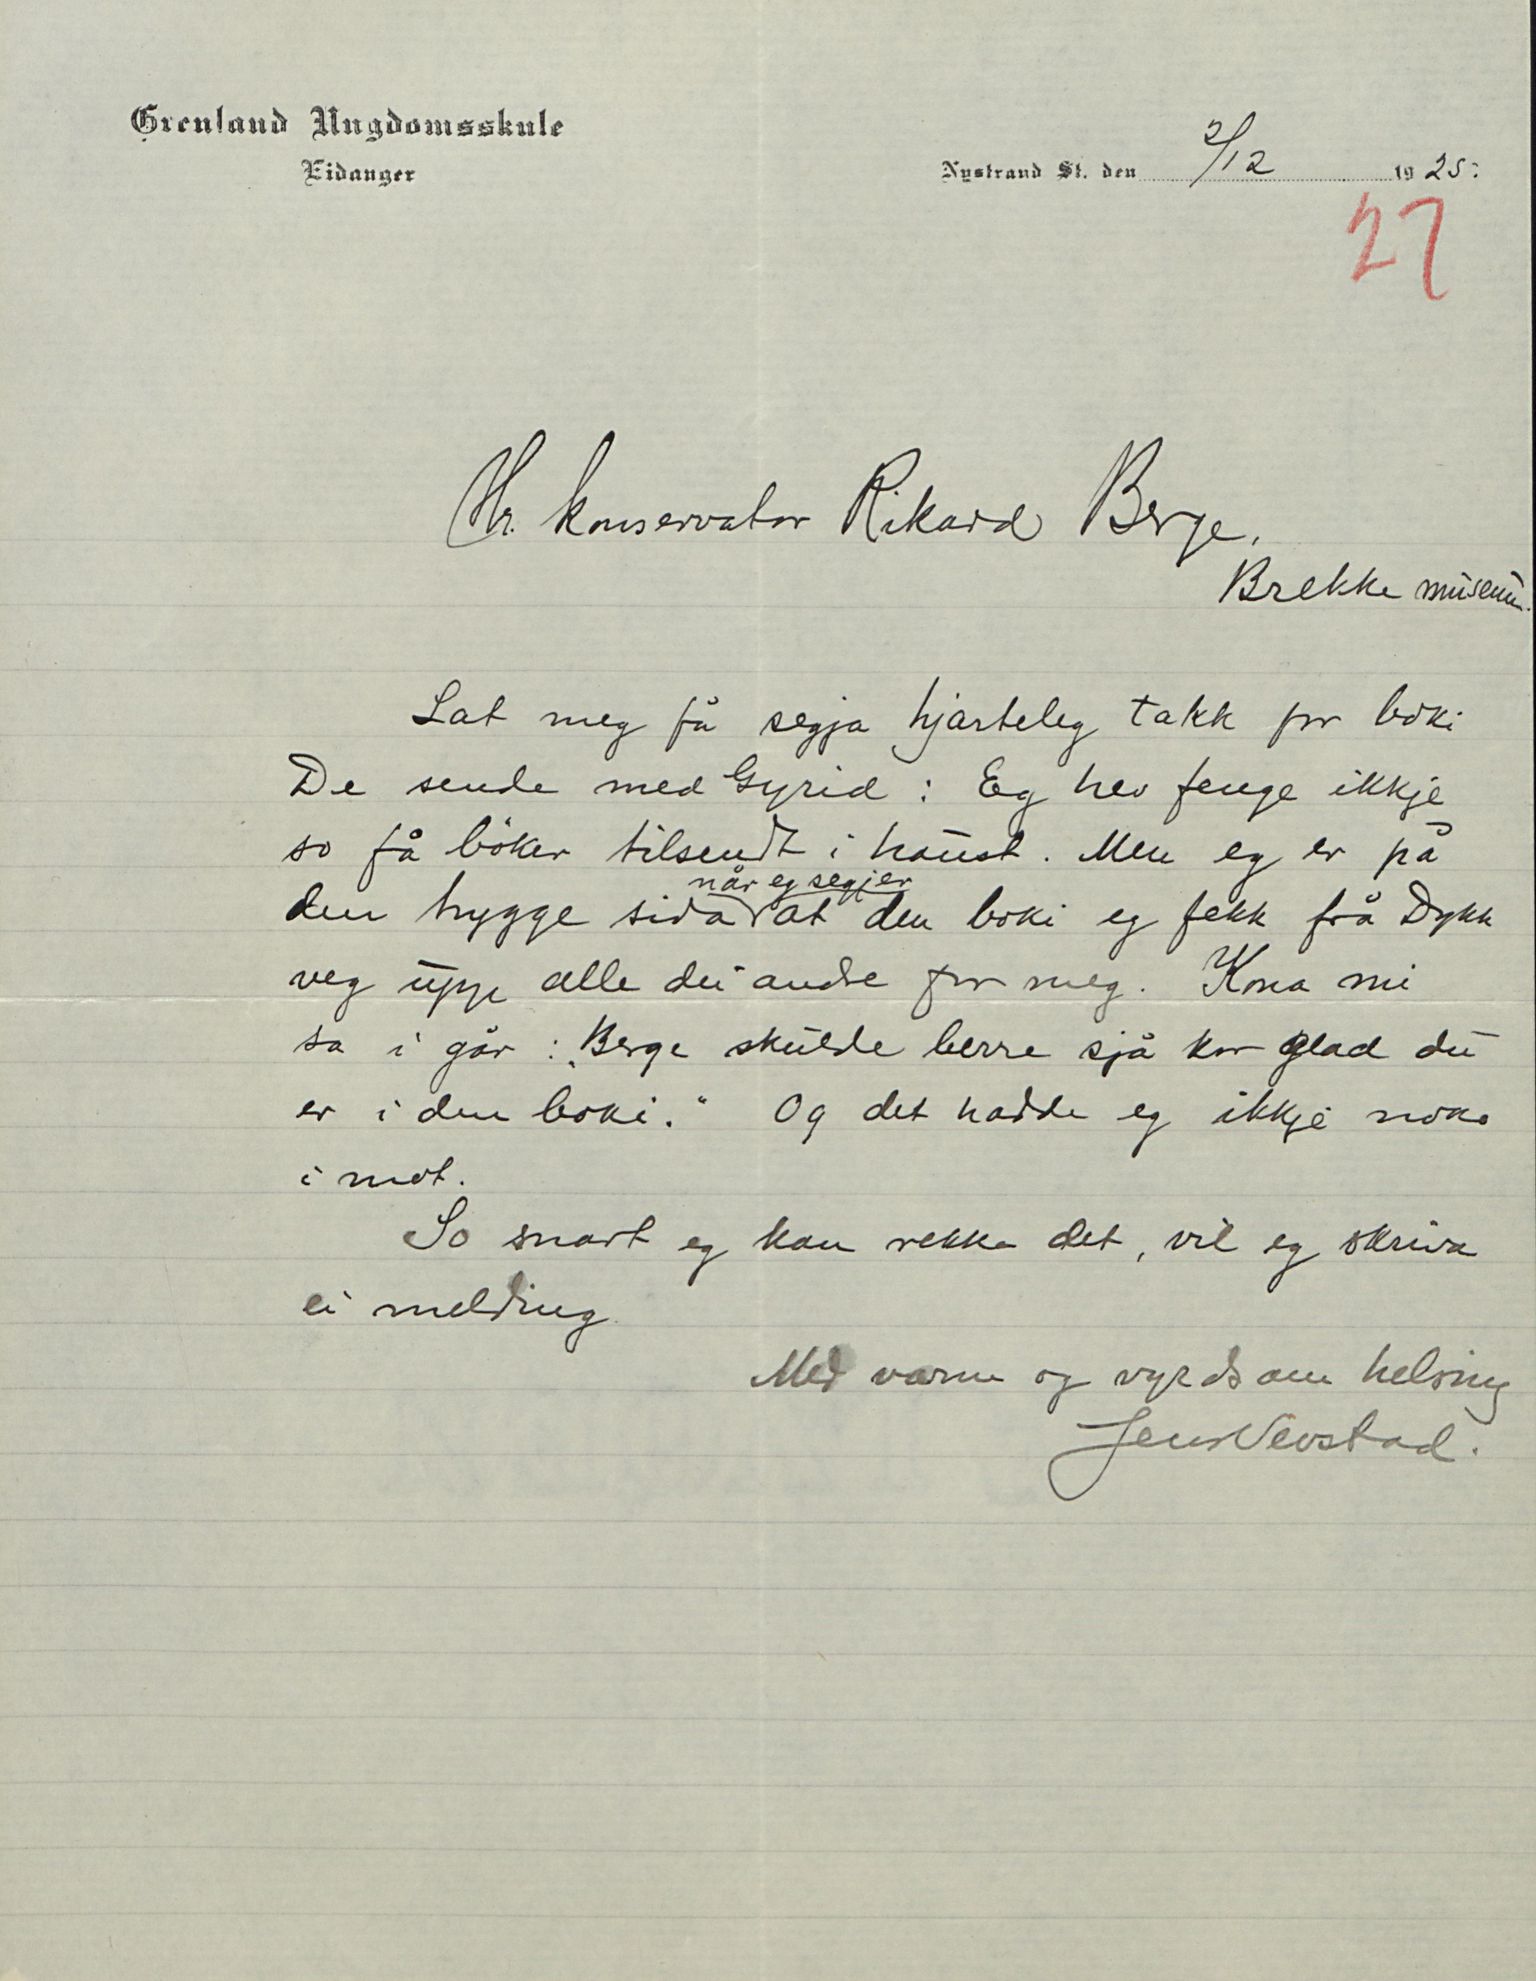 Grenland Ungdomsskule
Eidanger
Nystrand St. den 2/12 1925.
27
Hr. konservator Rikard Berge,
Brekke museum.
Lat meg få segja hjarteleg takk for boki
De sende med Gyrid: Eg hev fenge ikkje
so få böker tilsendt i haust. Men eg er på
når eg segjer
den trygge sida at den boki eg fekk frå Dykk
veg upp alle dei andre for meg. Kona mi
sa i går: „Berge skulde berre sjå kor glad du
er i den boki." Og det hadde eg ikkje noko
i mot.
So snart eg kan rekke det, vil eg skriva
ei melding.
Med varm og vyrdsam helsing
Jens Nevstad.